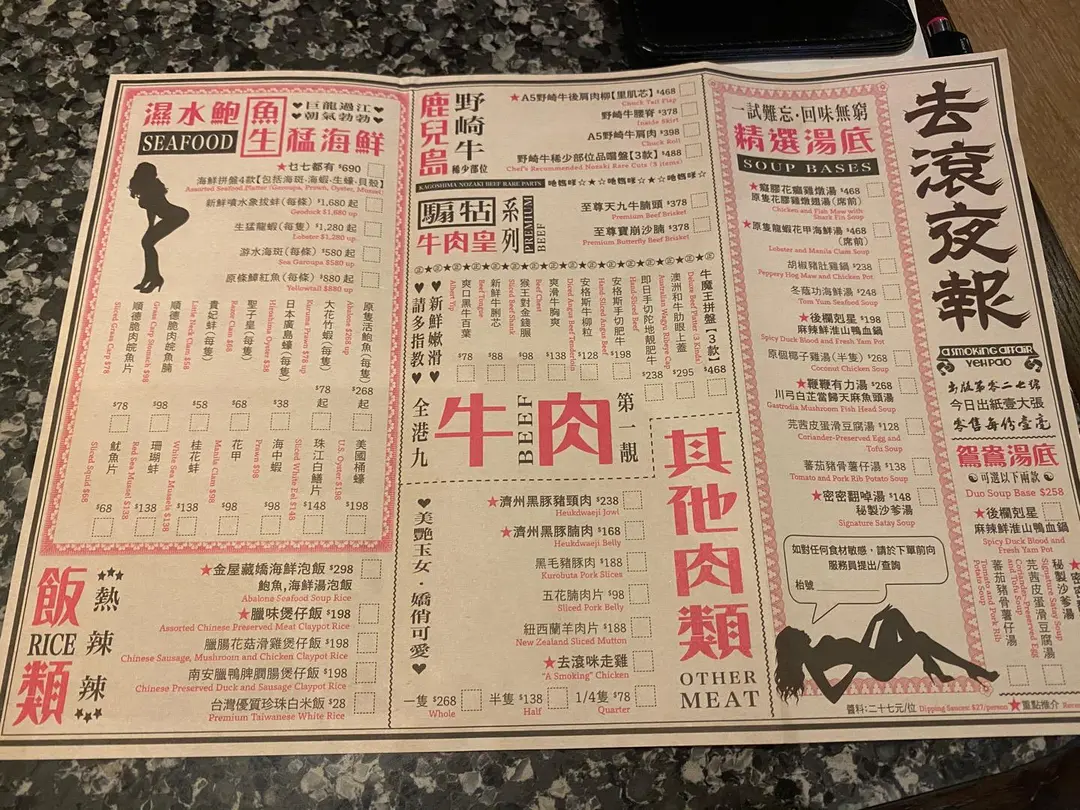 濕水鮑魚
SEAFOOD
生猛海鮮
♥巨龍過江♥
♥朝氣勃勃♥
★乜七都有 $690
海鮮拼盤4款【包括海斑·海蝦·生蠔·貝殼】
Assorted Seafood Platter (Garoupa, Prawn, Oyster, Mussel)
新鮮噴水象拔蚌(每條) $1,680 起
Geoduck $1,680 up
生猛龍蝦(每條) $1,280 起
Lobster $1,280 up
游水海斑(每條) $580 起
Sea Garoupa $580 up
原條鰤魚(每條) $880 起
Yellowtail $880 up
原隻活鮑魚(每隻) $268 起
Abalone $268 up
大花竹蝦(每隻) $78 起
Kuruma Prawn $78 up
日本廣島蠔(每隻) $38
Hiroshima Oyster $38
聖子皇(每隻) $68
Razor Clam $68
貴妃蚌(每隻) $58
Little Neck Clam $58
順德脆肉鯇魚腩 $98
Grass Carp Stomach $98
順德脆肉鯇魚片 $78
Sliced Grass Carp $78
美國桶蠔 $198
U.S. Oyster $198
珠江白鱔片 $148
Sliced White Eel $148
海中蝦 $98
Prawn $98
花甲 $98
Manila Clam $98
桂花蚌 $138
White Sea Mussels $138
珊瑚蚌 $138
Red Sea Mussel $138
魷魚片 $68
Sliced Squid $68
飯類
RICE
熱辣辣
★金屋藏嬌海鮮泡飯 $298
鮑魚,海鮮湯泡飯
Abalone Seafood Soup Rice
★臘味煲仔飯 $198
Assorted Chinese Preserved Meat Claypot Rice
臘腸花菇滑雞煲仔飯 $198
Chinese Sausage, Mushroom and Chicken Claypot Rice
南安臘鴨脾膶腸煲仔飯 $198
Chinese Preserved Duck and Sausage Claypot Rice
台灣優質珍珠白米飯 $28
Premium Taiwanese White Rice
鹿兒島
野崎牛
稀少部位
KAGOSHIMA NOZAKI BEEF RARE PARTS
★A5野崎牛後肩肉柳【里肌芯】 $468
Chuck Tail Flap
野崎牛腰脊 $378
Inside Skirt
A5野崎牛肩肉 $398
Chuck Roll
野崎牛稀少部位品嚐盤【3款】 $488
Chef's Recommended Nozaki Rare Cuts (3 items)
騸牯系列
牛肉皇
PREMIUM BEEF
至尊天九牛腩頭 $378
Premium Beef Brisket
至尊寶崩沙腩 $378
Premium Butterfly Beef Brisket
♥新鮮嫩滑♥
♥請多指教♥
牛魔王拼盤【3款】 $468
Deluxe Beef Platter (3 Kinds)
澳洲和牛肋眼上蓋 $295
Australian Wagyu Ribeye Cap
即日手切陀地靚肥牛 $238
Hand-Sliced Beef
安格斯手切肥牛 $198
Hand-Sliced Angus Beef
安格斯牛柳粒 $128
Diced Angus Beef Tenderloin
爽滑牛胸爽 $138
Beef Chest
猴王對金錢𦟌 $98
Sliced Beef Shank
新鮮牛脷芯 $88
Beef Tongue
爽口黑牛百葉 $78
全港九
牛肉
BEEF
第一靚
♥美艷玉女·嬌俏可愛♥
★濟州黑豚豬頸肉 $238
Heukdwaeji Jowl
★濟州黑豚腩肉 $168
Heukdwaeji Belly
黑毛豬豚肉 $188
Kurobuta Pork Slices
五花腩肉片 $98
Sliced Pork Belly
紐西蘭羊肉片 $188
New Zealand Sliced Mutton
★去滾咪走雞
"A Smoking" Chicken
一隻 $268 半隻 $138 1/4隻 $78
Whole Half Quarter
其他肉類
OTHER
MEAT
一試難忘·回味無窮
精選湯底
SOUP BASES
★癡膠花癲雞燉湯 $468
原隻花膠雞燉湯(席前)
Chicken and Fish Maw with
Shark Fin Soup
★原隻龍蝦花甲海鮮湯 $468
(席前)
Lobster and Manila Clam Soup
胡椒豬肚雞鍋 $238
Peppery Hog Maw and Chicken Pot
冬蔭功海鮮湯 $248
Tom Yum Seafood Soup
★後欄剋星 $198
麻辣鮮淮山鴨血鍋
Spicy Duck Blood and Fresh Yam Pot
原個椰子雞湯(半隻) $268
Coconut Chicken Soup
★鞭鞭有力湯 $268
川弓白芷當歸天麻魚頭湯
Gastrodia Mushroom Fish Head Soup
芫茜皮蛋滑豆腐湯 $128
Coriander-Preserved Egg and
Tofu Soup
蕃茄豬骨薯仔湯 $138
Tomato and Pork Rib Potato Soup
★密密翻啅湯 $148
秘製沙爹湯
Signature Satay Soup
如對任何食材敏感，請於下單前向
服務員提出/查詢
枱號
去滾夜報
A SMOKING AFFAIR
YEH PAO
出版第零二七號
今日出紙壹大張
零售每份壹毫
鴛鴦湯底
可選以下兩款
Duo Soup Base $258
★後欄剋星
麻辣鮮淮山鴨血鍋
Spicy Duck Blood and
Fresh Yam Pot
秘製沙爹湯
Signature Satay Soup
芫茜皮蛋滑豆腐湯
Coriander-Preserved Egg
and Tofu Soup
蕃茄豬骨薯仔湯
Tomato and Pork Rib
Potato Soup
醬料:二十七元/位 Dipping Sauces: $27/person ★重點推介